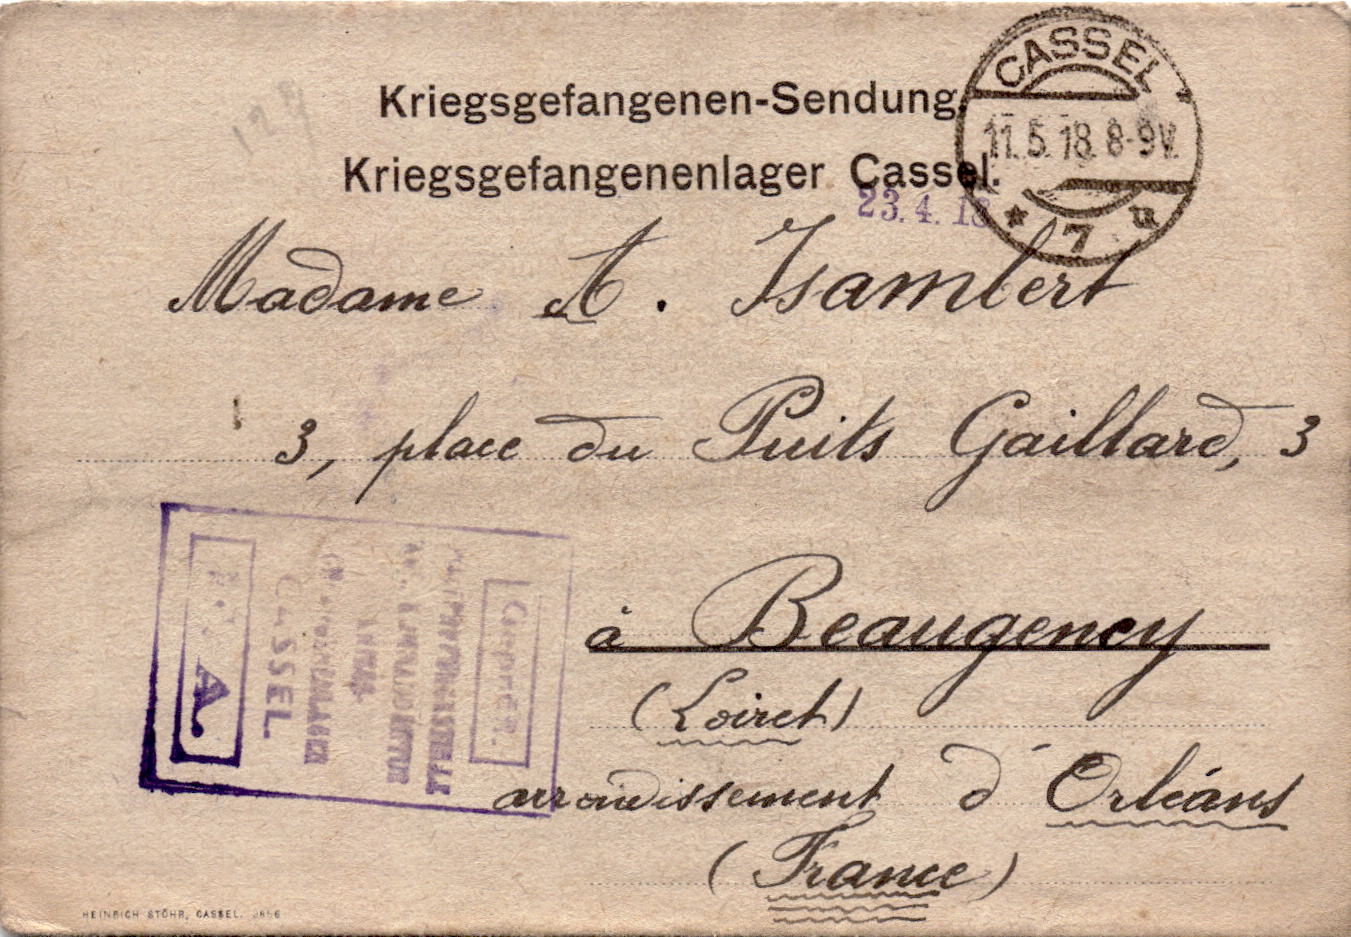 CASSEL
11.5.18. 8-9V.
* 7 u
Kriegsgefangenen-Sendung.
Kriegsgefangenenlager Cassel.
23.4.18
Madame A. Isambert
3, place du Puits Gaillard, 3
à Beaugency
(Loiret)
arrondissement d'Orléans
(France)
CASSEL.
A.
HEINRICH STÖHR, CASSEL.